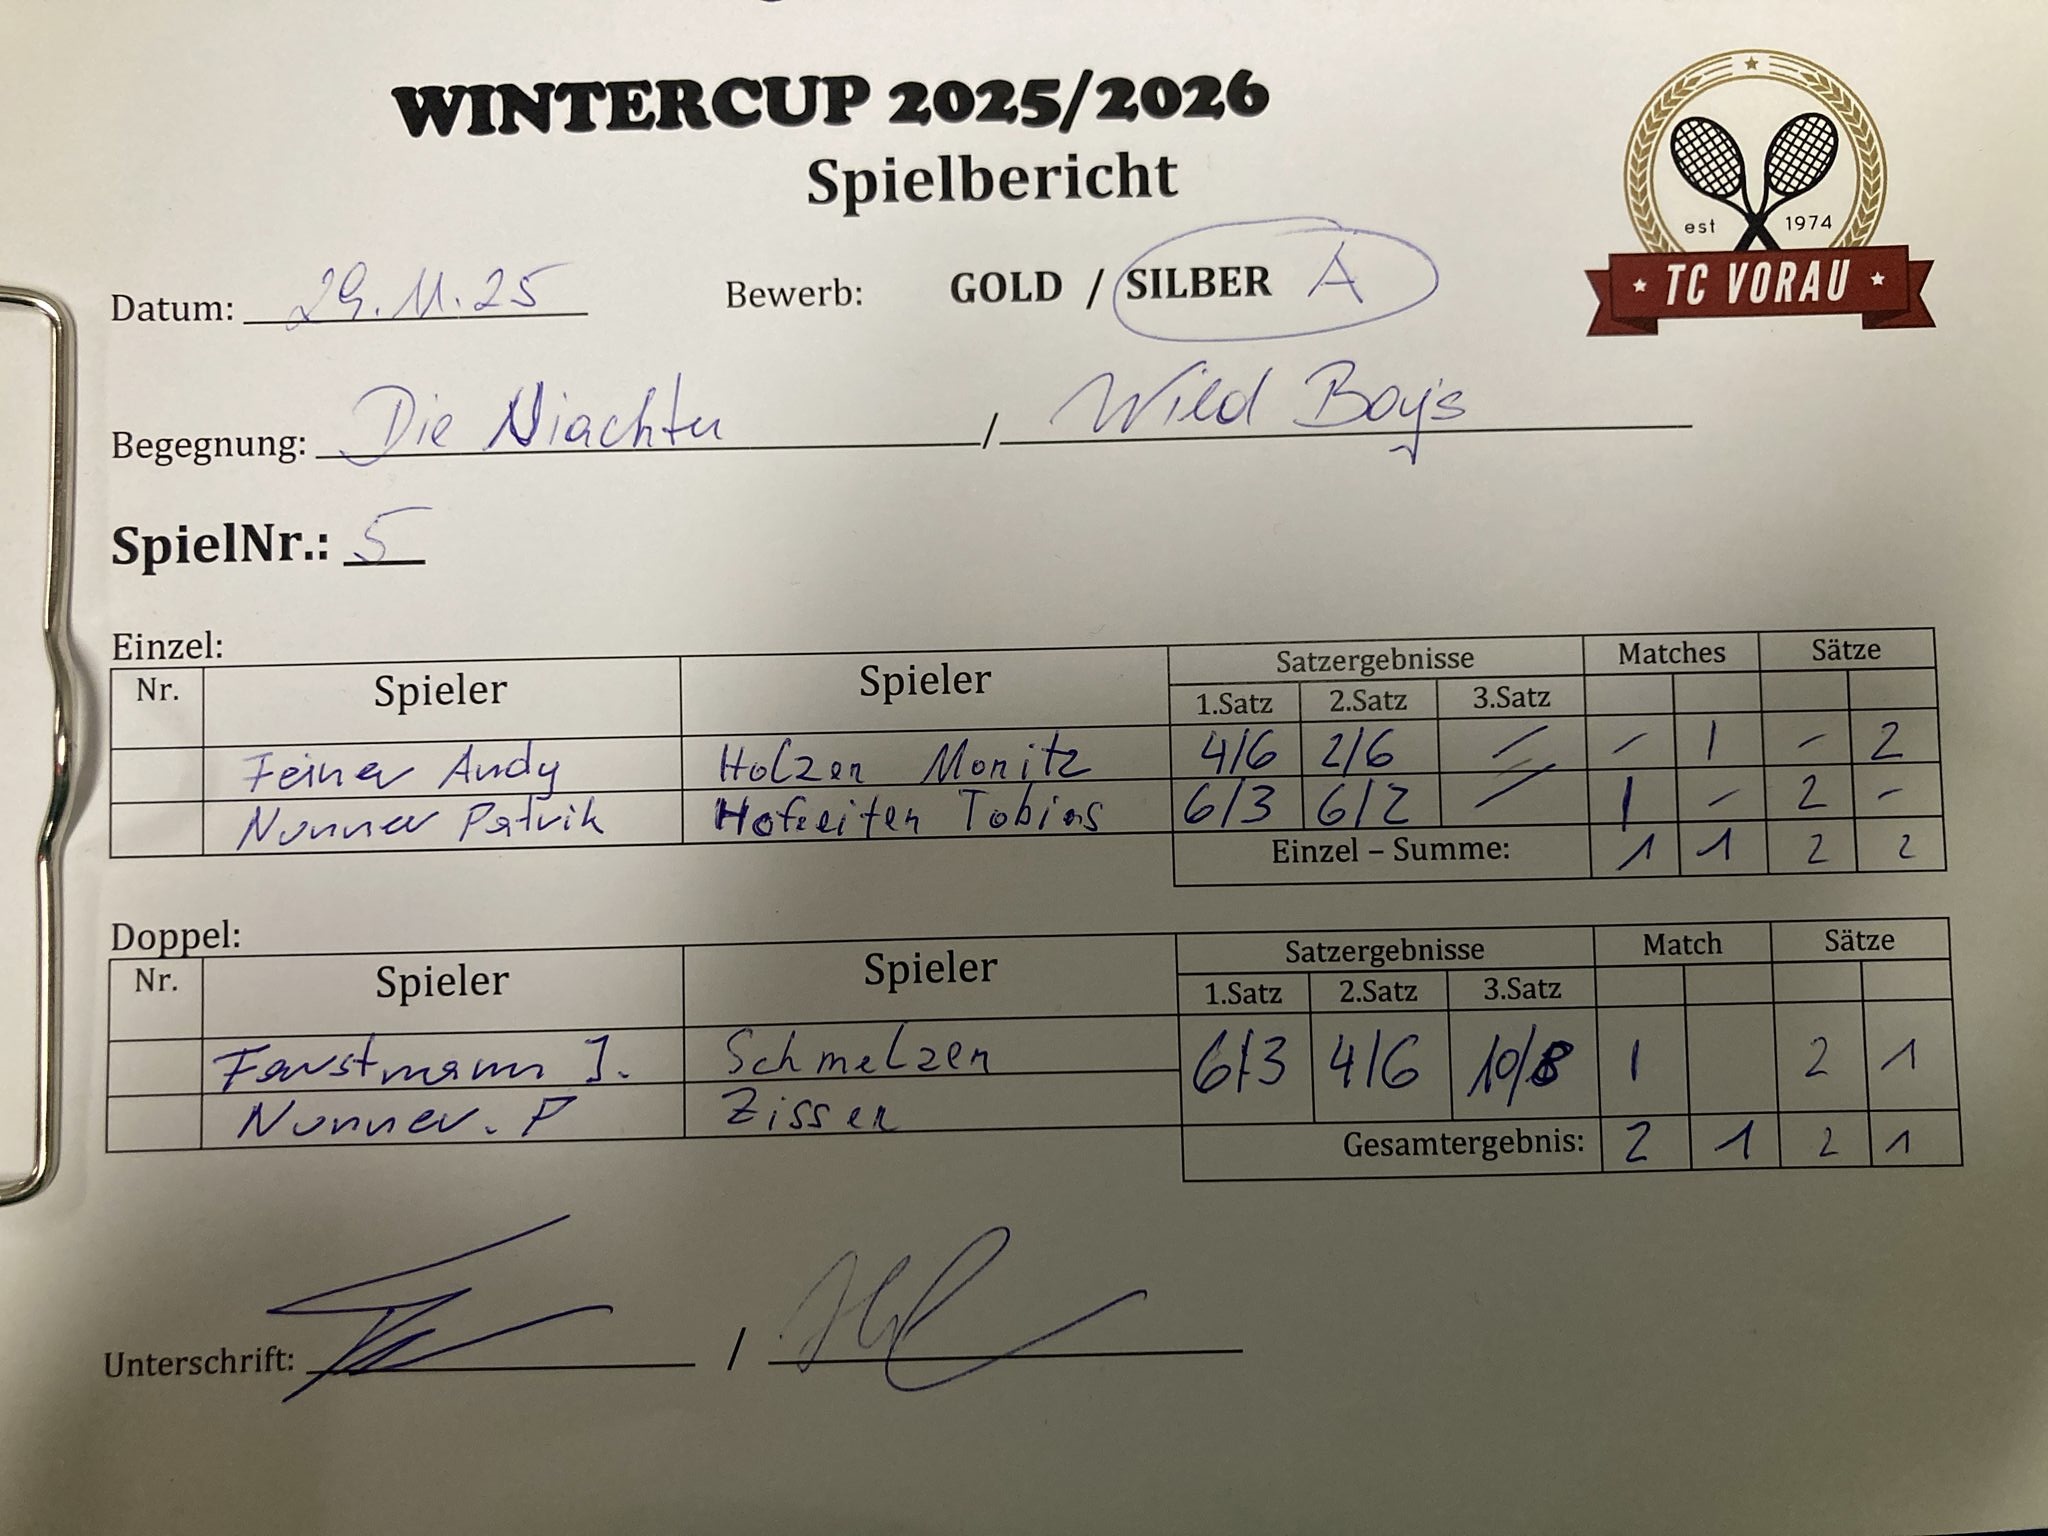 WINTERCUP 2025/2026
Spielbericht
est 1974
TC VORAU
Datum: 29.11.25 Bewerb: GOLD / SILBER A
Begegnung: Die Niachter / Wild Boy's
SpielNr.: 5
Einzel:
Nr. Spieler Spieler Satzergebnisse Matches Sätze
1.Satz 2.Satz 3.Satz
Feiner Andy Holzer Moritz 4/6 2/6 – – 1 – 2
Nunner Patrik Hofreiter Tobias 6/3 6/2 – 1 – 2 –
Einzel – Summe: 1 1 2 2
Doppel:
Nr. Spieler Spieler Satzergebnisse Match Sätze
1.Satz 2.Satz 3.Satz
Faustmann J. Schmelzer 6/3 4/6 10/8 1 2 1
Nunner. P Zisser
Gesamtergebnis: 2 1 2 1
Unterschrift: /